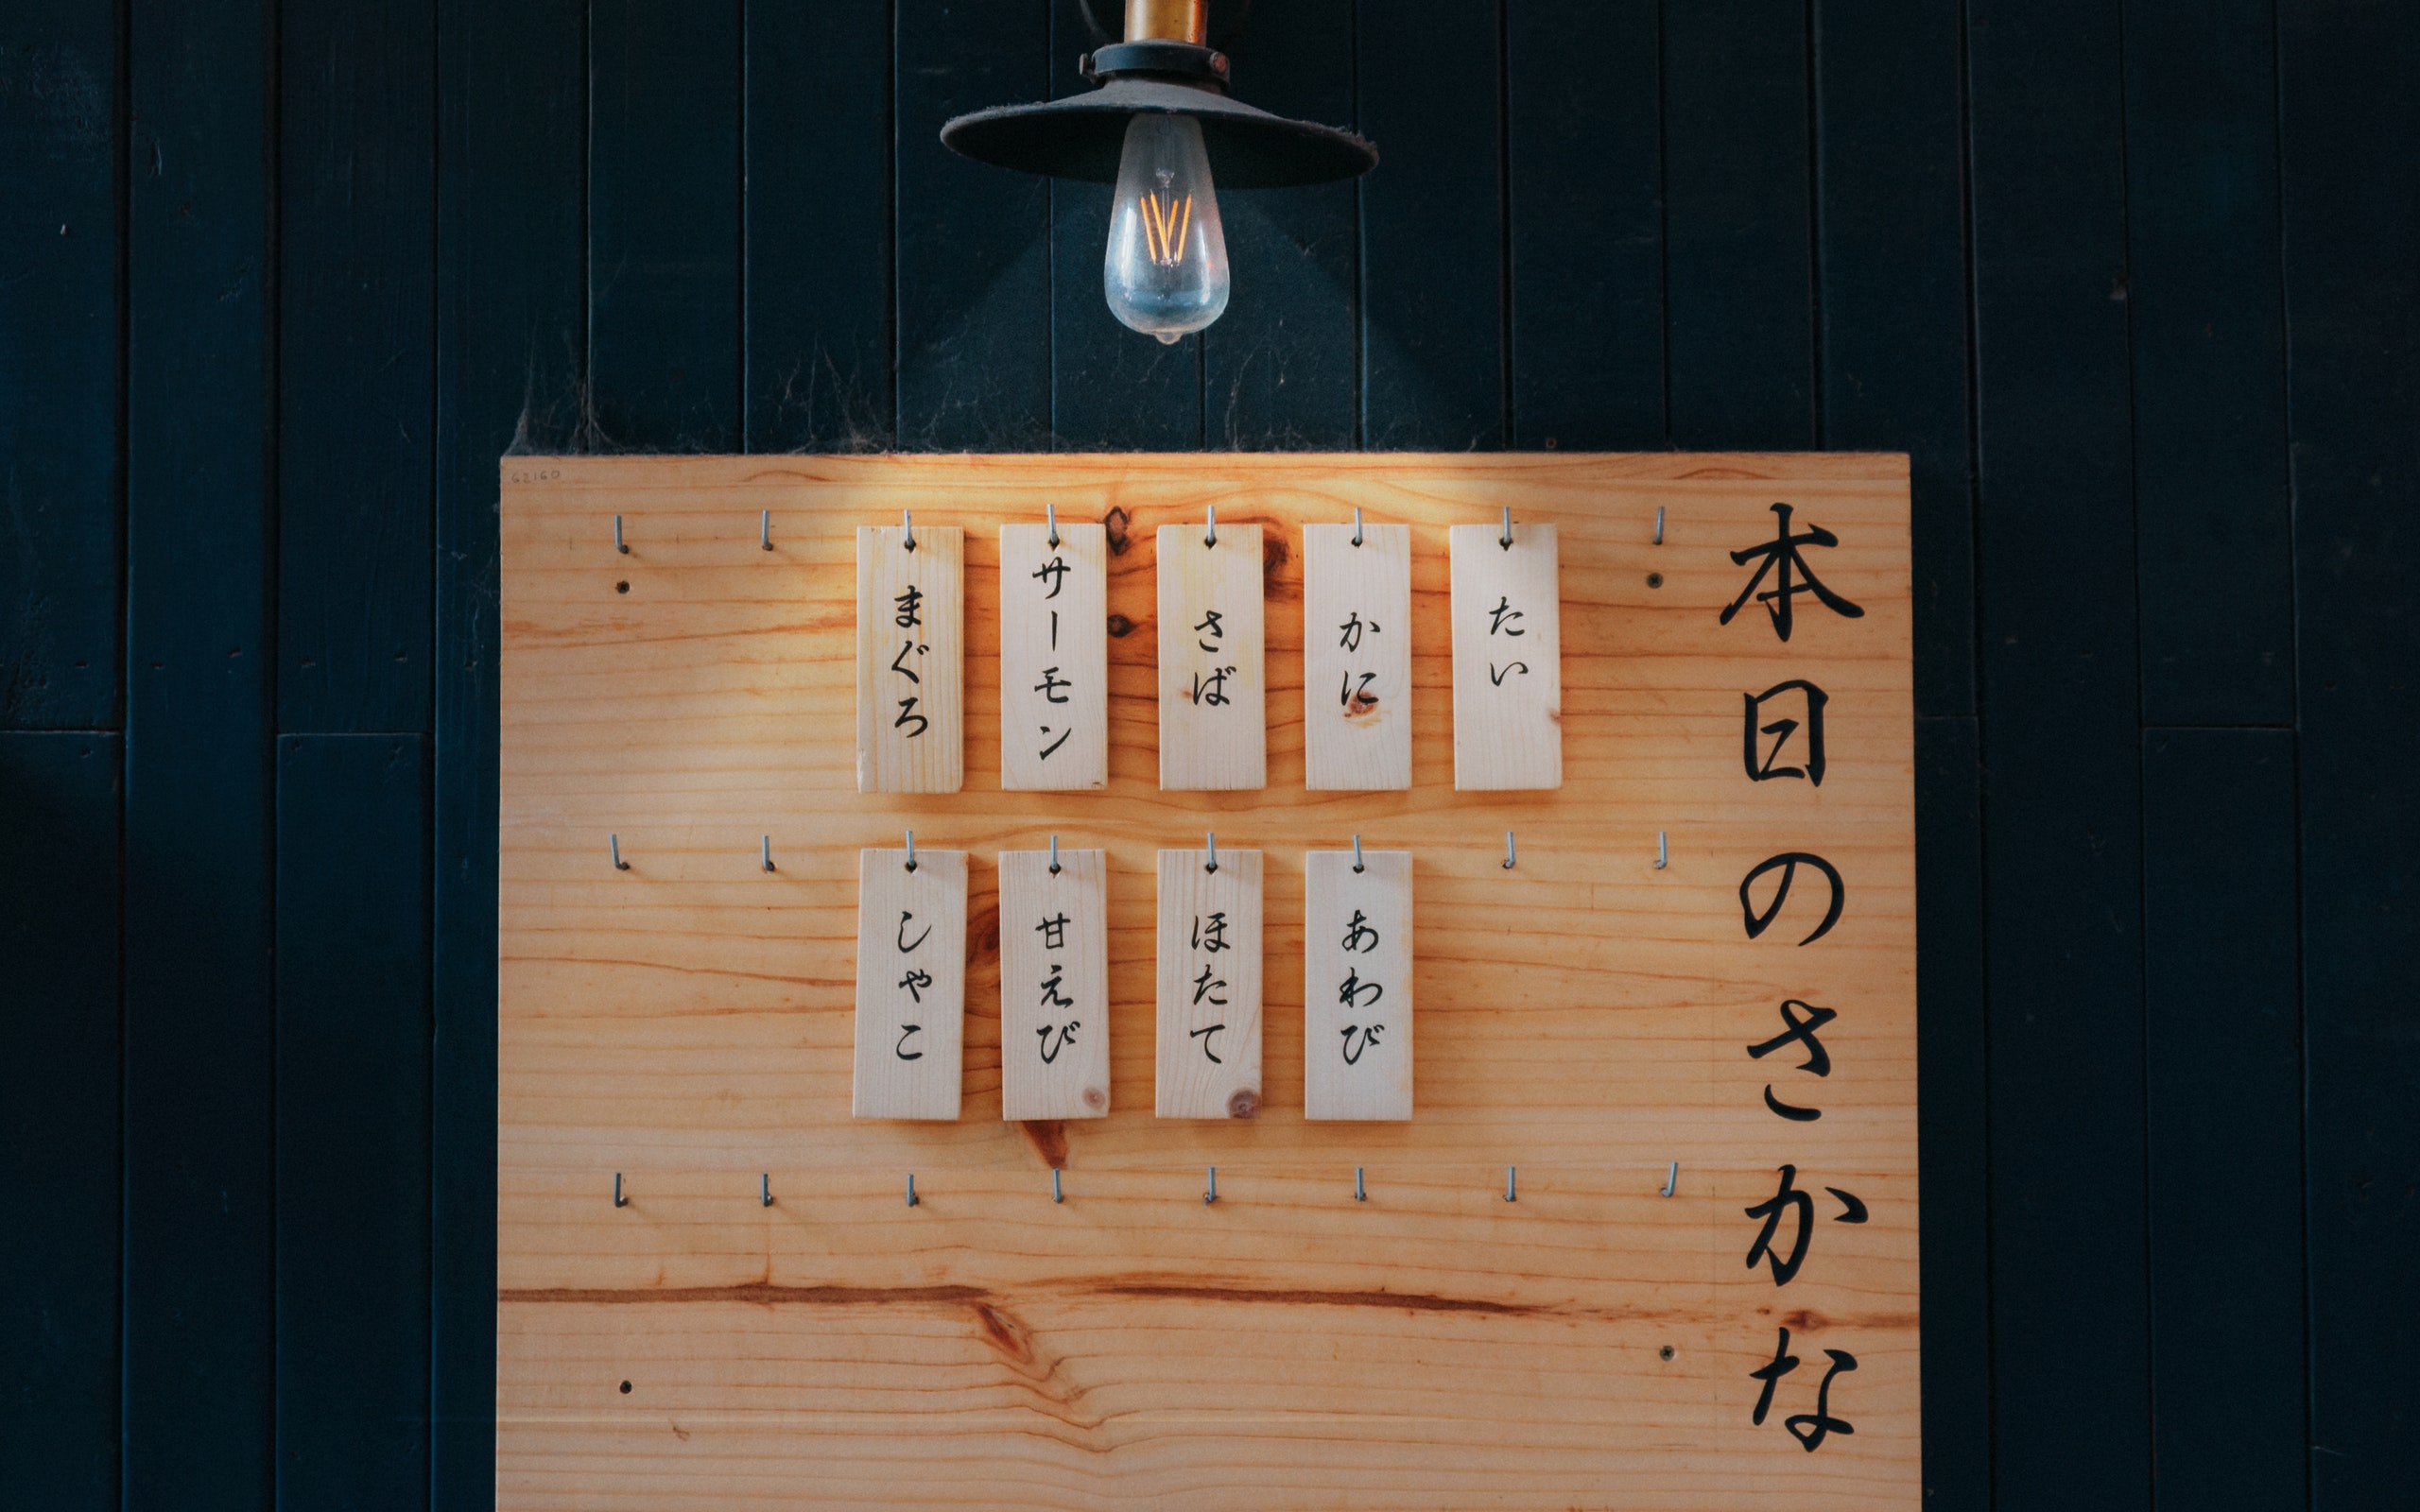 本日のさかな
たい
かに
さば
サーモン
まぐろ
あわび
ほたて
甘えび
しゃこ
62160